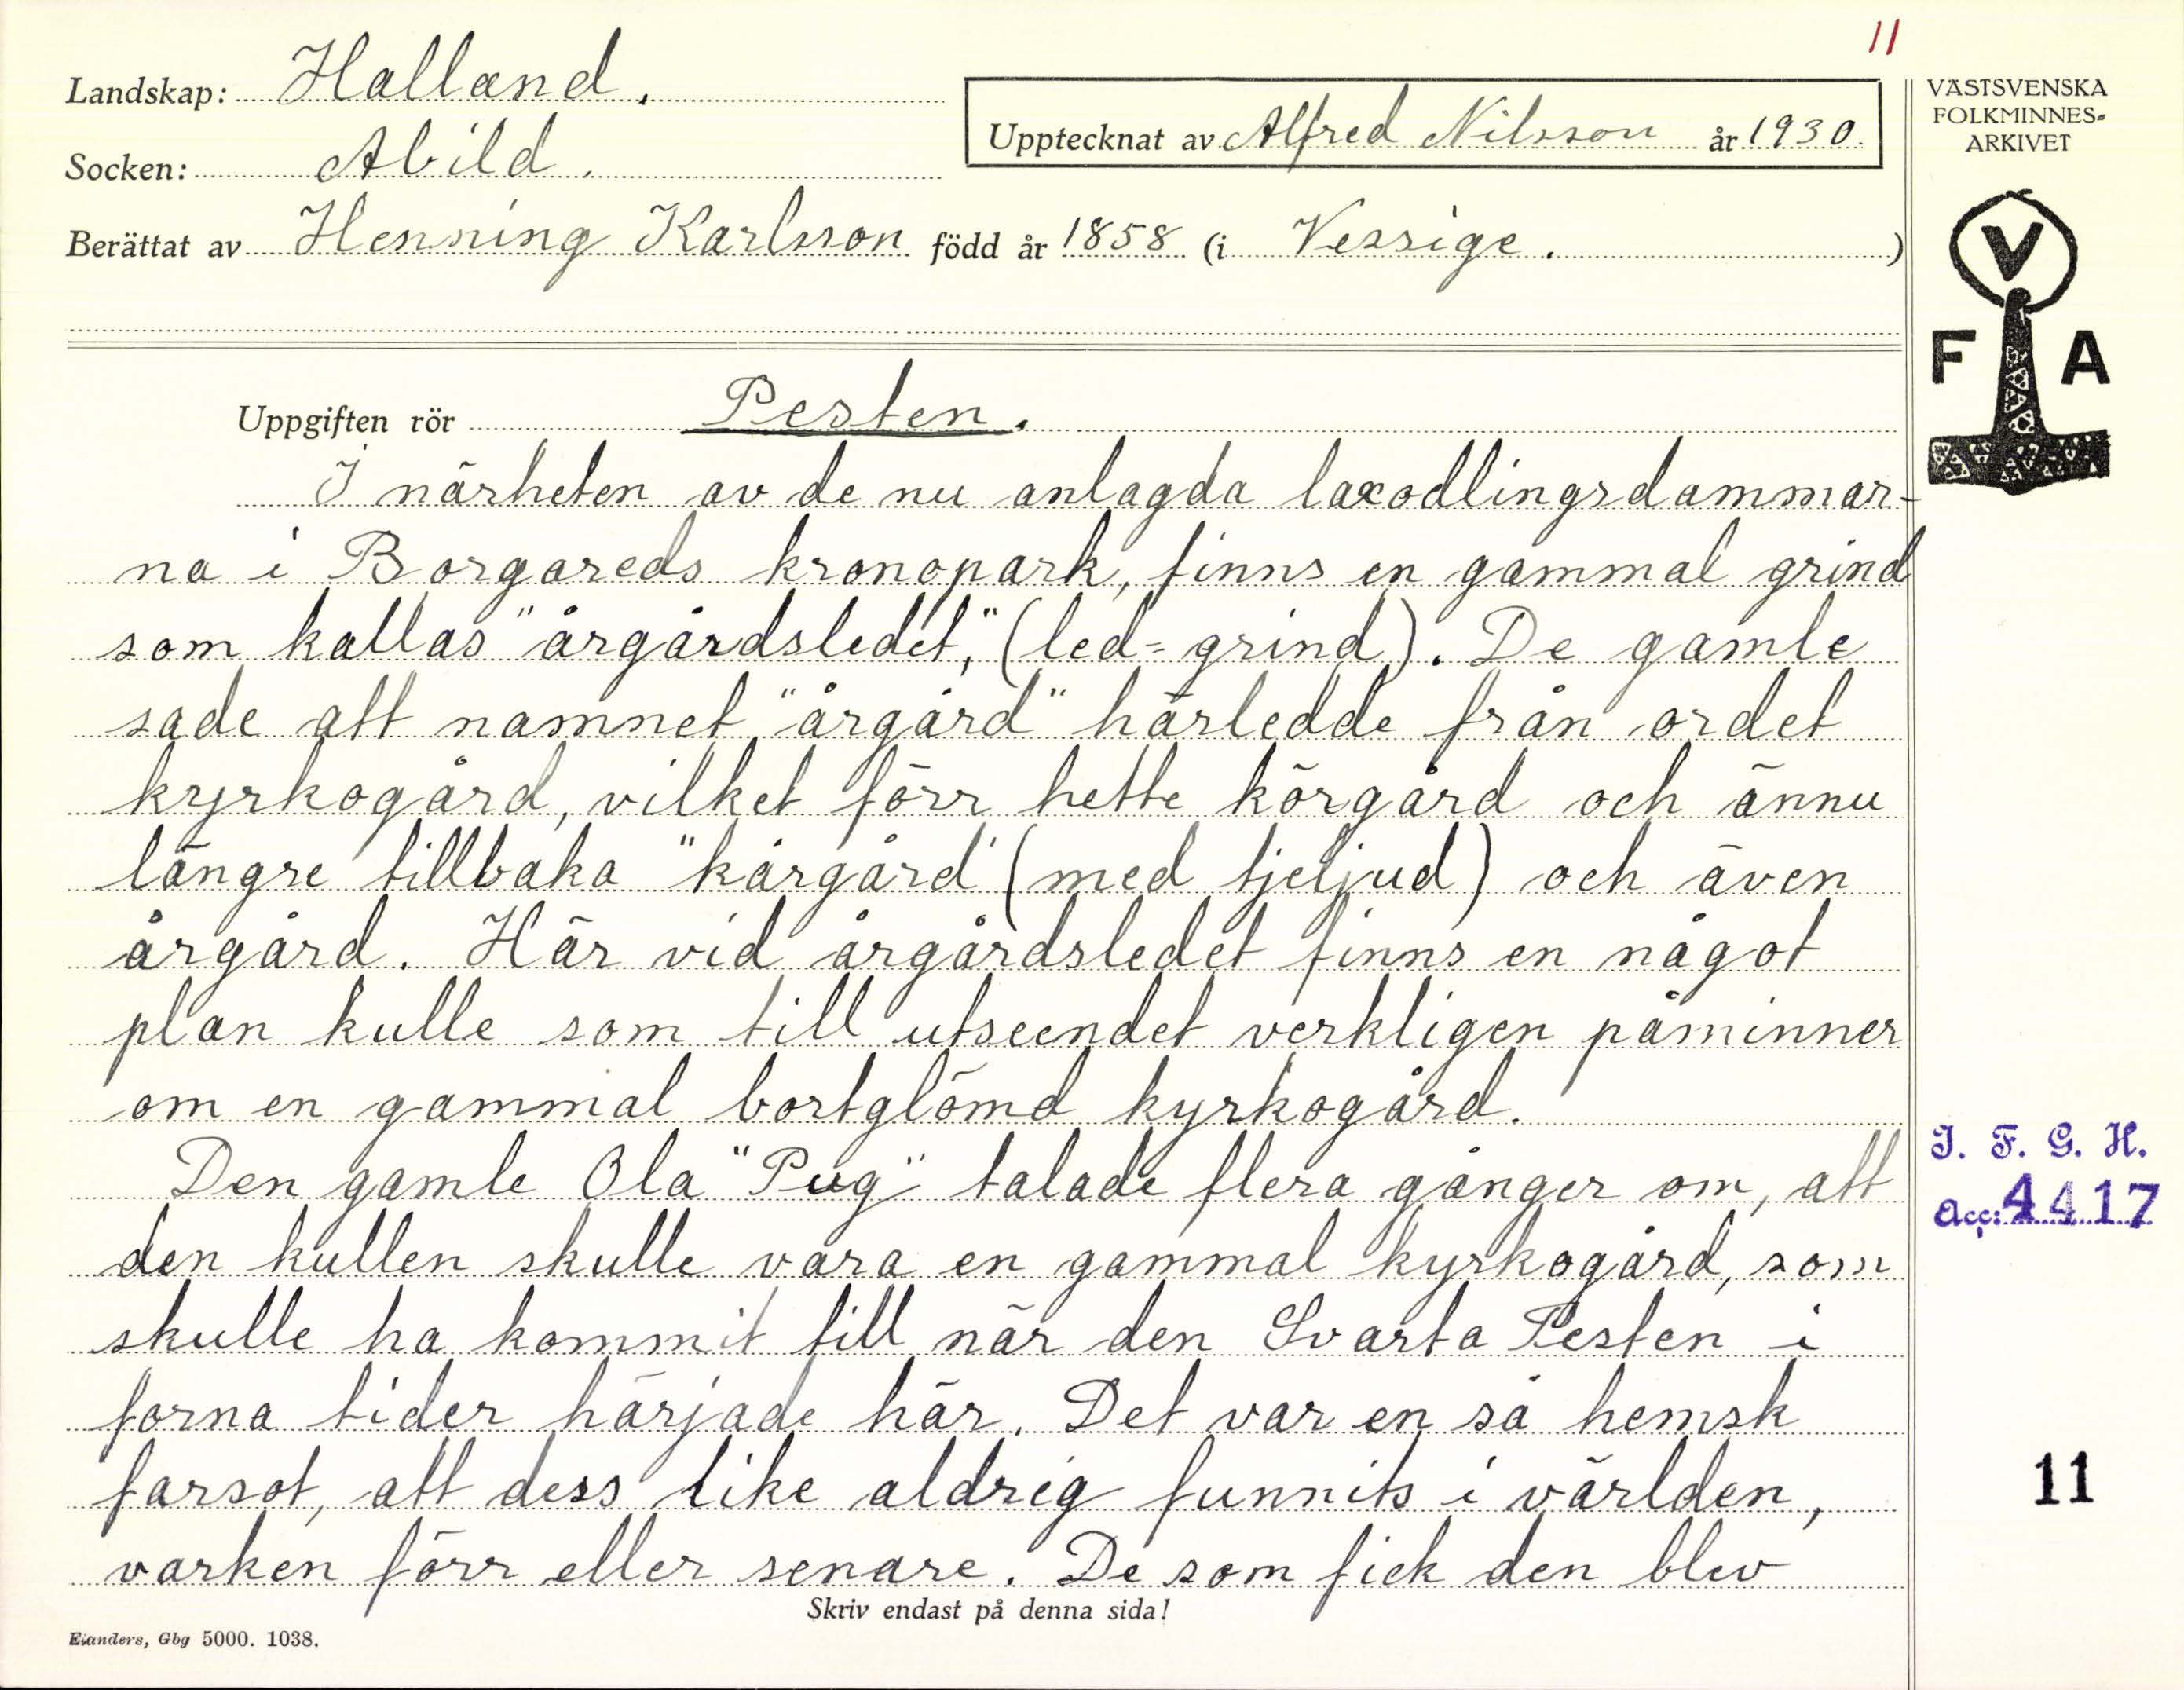 11
Landskap: Halland.
Socken: Abild.
Upptecknat av Alfred Nilsson år 1930.
Berättat av Henning Karlsson född år 1858 (i Vessige.)
VÄSTSVENSKA
FOLKMINNES-
ARKIVET
V
F A
Uppgiften rör Pesten.
I närheten av de nu anlagda laxodlingsdammar-
na i Borgareds kronopark, finns en gammal grind
som kallas "årgårdsledet," (led = grind). De gamle
sade att namnet "årgård" härledde från ordet
kyrkogård, vilket förr hette körgård och ännu
längre tillbaka "kårgård" (med tjeljud) och även
årgård. Här vid årgårdsledet finns en något
plan kulle som till utseendet verkligen påminner
om en gammal bortglömd kyrkogård.
Den gamle Ola "Pug" talade flera gånger om, att
den kullen skulle vara en gammal kyrkogård, som
skulle ha kommit till när den Svarta Pesten i
forna tider härjade här. Det var en så hemsk
farsot, att dess like aldrig funnits i världen,
varken förr eller senare. De som fick den blev
I. F. G. H.
Acc: 4417
11
Skriv endast på denna sida!
Elanders, Gbg 5000. 1038.